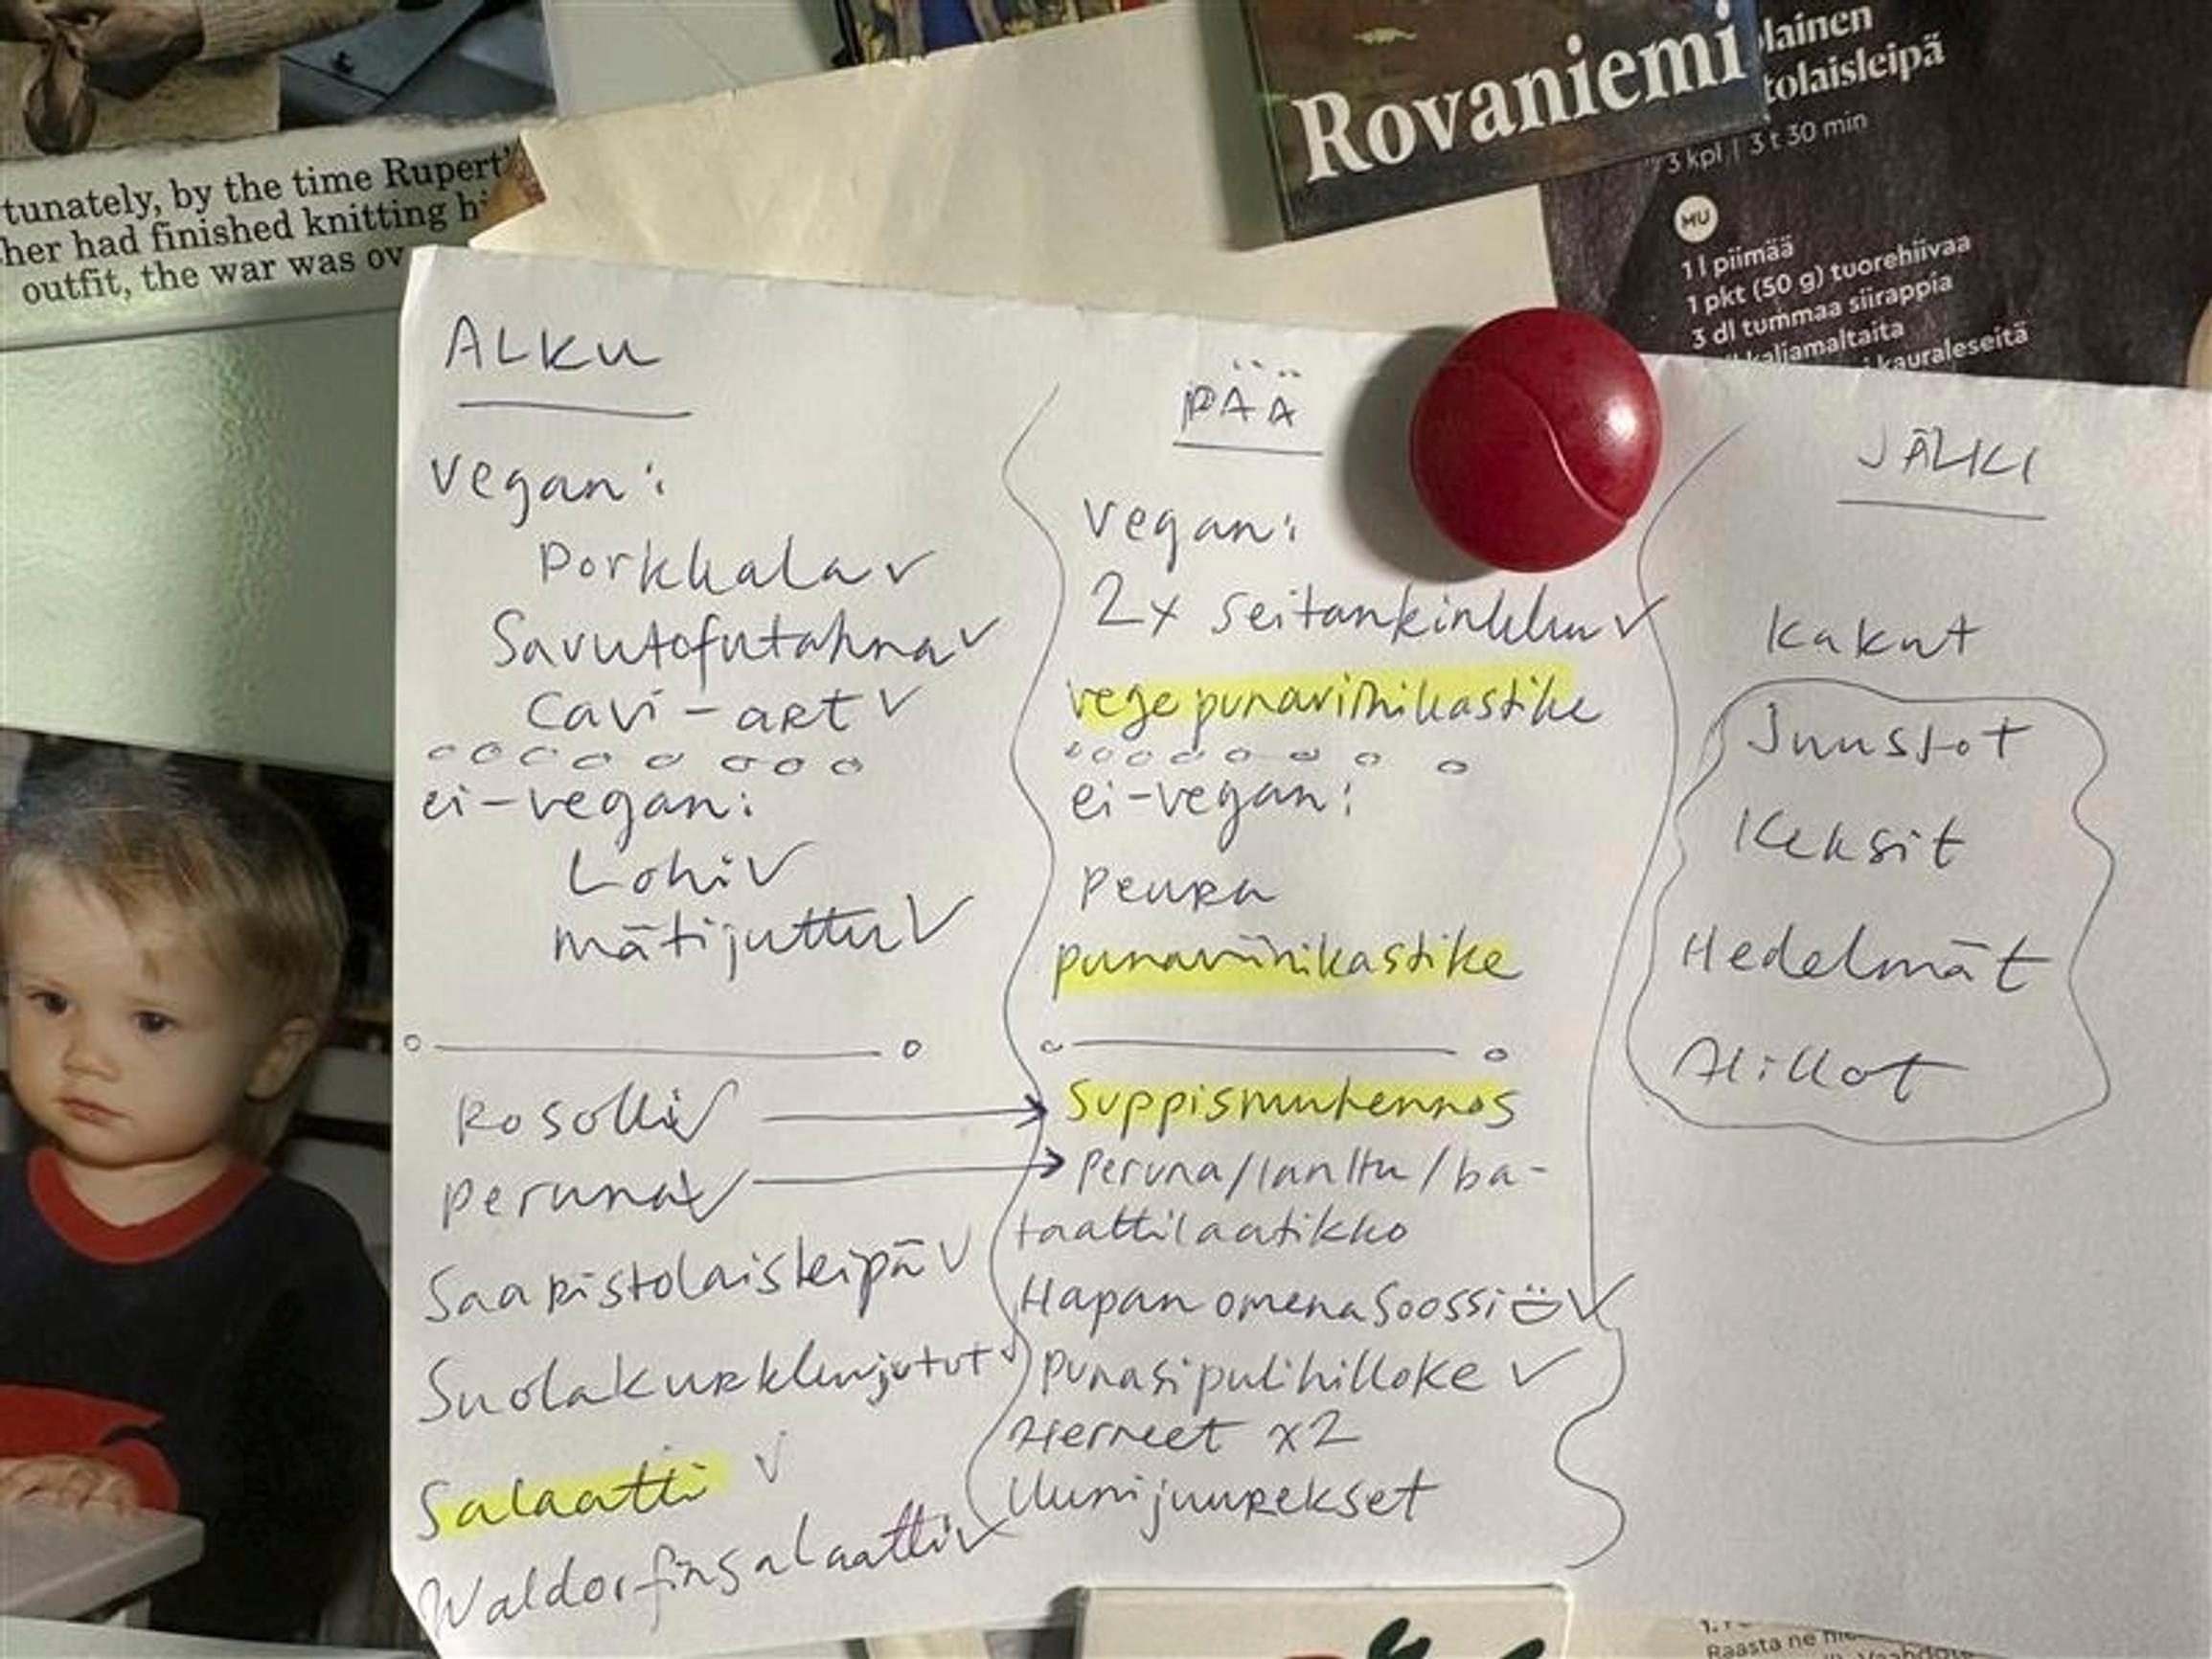 tunately, by the time Rupert'
her had finished knitting hi
outfit, the war was ov
Rovaniemi
lainen
tolaisleipä
3 kpl | 3 t 30 min
MU
1 l piimää
1 pkt (50 g) tuorehiivaa
3 dl tummaa siirappia
kaljamaltaita
kauraleseitä
ALKU
vegan:
Porkkala ✓
Savutofutahna ✓
Cavi-art ✓
ei-vegan:
Lohi ✓
mätijuttu ✓
Rosolli ✓ →
Perunat ✓ →
Saaristolaisleipä ✓
Suolakurkkujutut ✓
Salaatti ✓
Waldorfinsalaatti ✓
PÄÄ
vegan:
2x seitankinkku ✓
vege punaviinikastike
ei-vegan:
Peura
punaviinikastike
Suppismuhennos
Peruna/lanttu/ba-
taattilaatikko
Hapan omenasoossi ✓
Punasipulihilloke ✓
Herneet x2
Uunijuurekset
JÄLKI
Kakut
Juustot
Keksit
Hedelmät
Hillot
Raasta ne